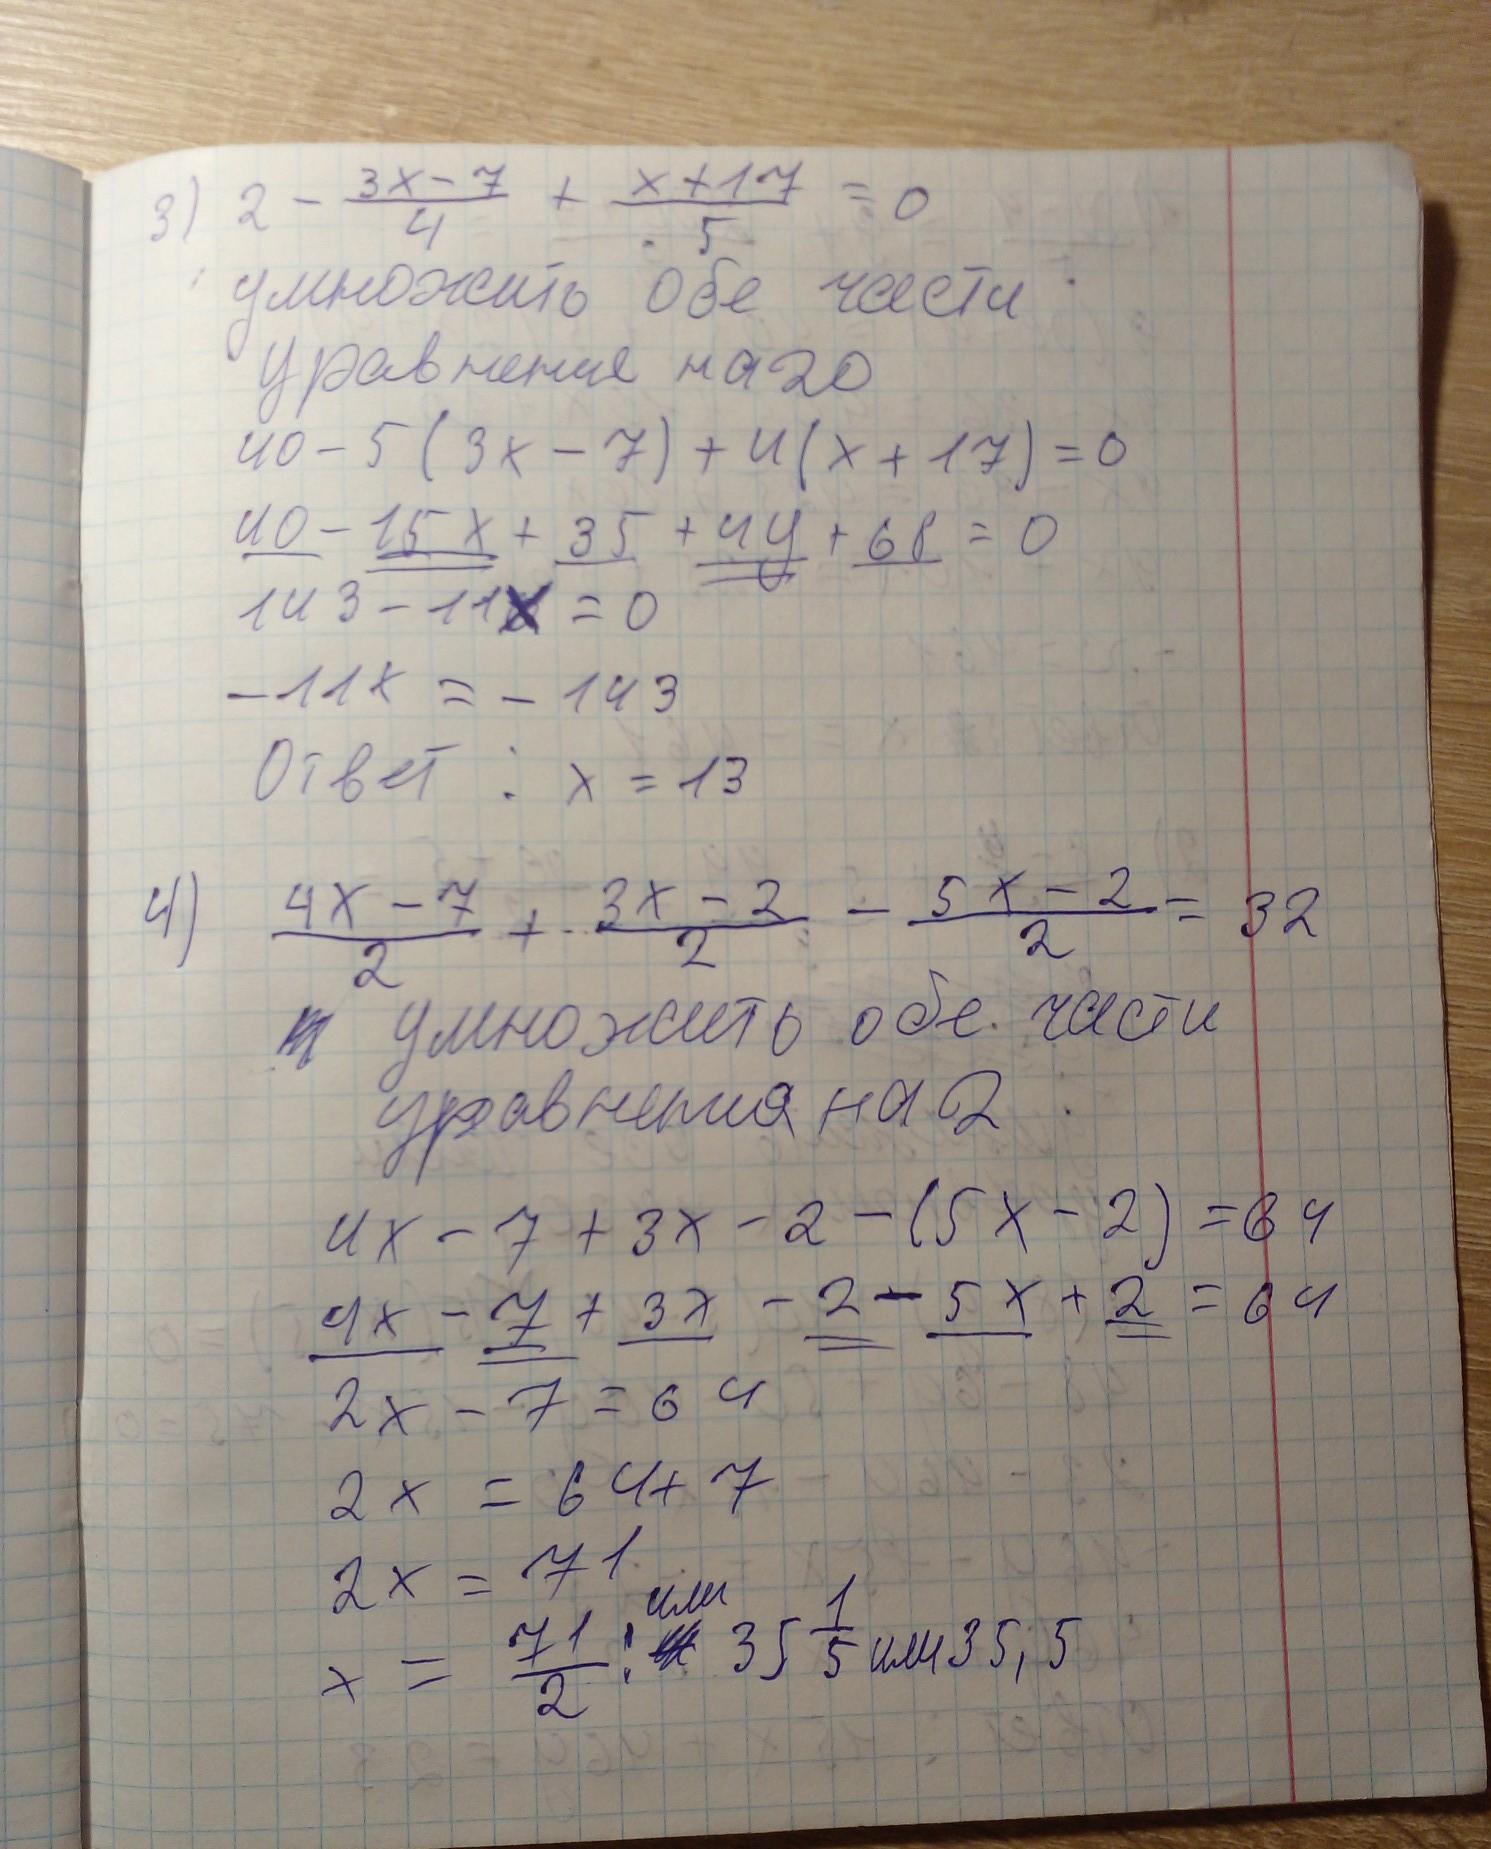 3) 2 - (3x-7)/4 + (x+17)/5 = 0
умножить обе части
уравнение на 20
40 - 5(3x - 7) + 4(x + 17) = 0
40 - 15x + 35 + 4y + 68 = 0
143 - 11x = 0
-11x = -143
Ответ : x = 13
4) (4x-7)/2 + (3x-2)/2 - (5x-2)/2 = 32
умножить обе части
уравнения на 2
4x - 7 + 3x - 2 - (5x - 2) = 64
4x - 7 + 3x - 2 - 5x + 2 = 64
2x - 7 = 64
2x = 64 + 7
2x = 71
x = 71/2 ; или 35 1/5 или 35,5